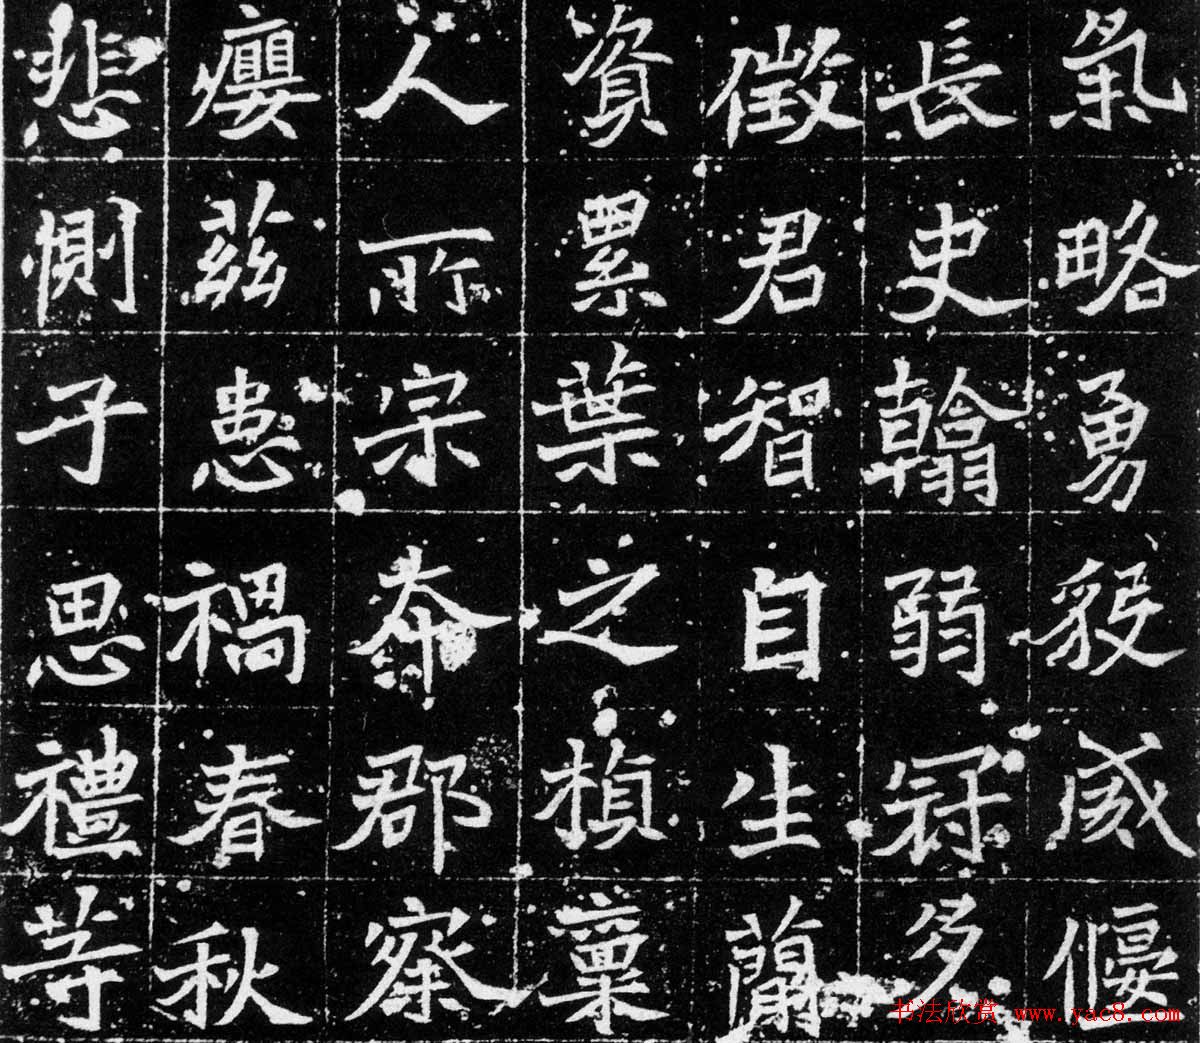 氣略勇毅威偃
長史翰弱冠多
徵君智自生蘭
資累葉之楨稟
人所宗奉郡察
癭茲患禍春秋
悲惻于思禮等
书法欣赏 www.yac8.com